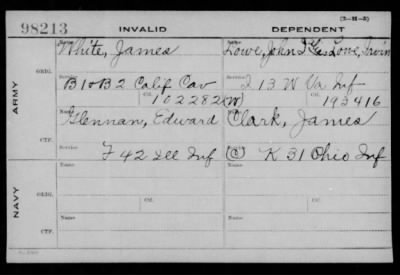 (3-H-3)
98213 INVALID DEPENDENT
ARMY
NAVY
ORIG.
Name
White, James
Service
B 1 & B 2 Calif Cav
Ctf.
102282
Lowe, John
Lowe, Irvin
Service
I 13 W Va Inf
Ctf.
(W) 193416
CTF.
Name
Glennan, Edward
Service
F 42 Ill Inf
Name
Clark, James
Service
(C) K 31 Ohio Inf
ORIG.
Name
Service
Ctf.
Name
Service
Ctf.
CTF.
Name
Service
Name
Service